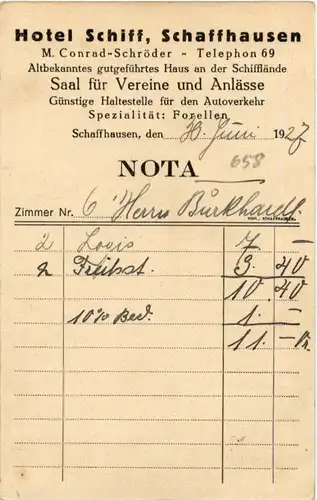 Hotel Schiff, Schaffhausen
M. Conrad-Schröder - Telephon 69
Altbekanntes gutgeführtes Haus an der Schifflände
Saal für Vereine und Anlässe
Günstige Haltestelle für den Autoverkehr
Spezialität: Forellen
Schaffhausen, den 20. Juni 1927
NOTA 658
Zimmer Nr. 6 Herrn Burkhardt.
2 Logis 7 —
2 Frühst. 3. 40
10. 40
10% Bed. 1. —
11. —